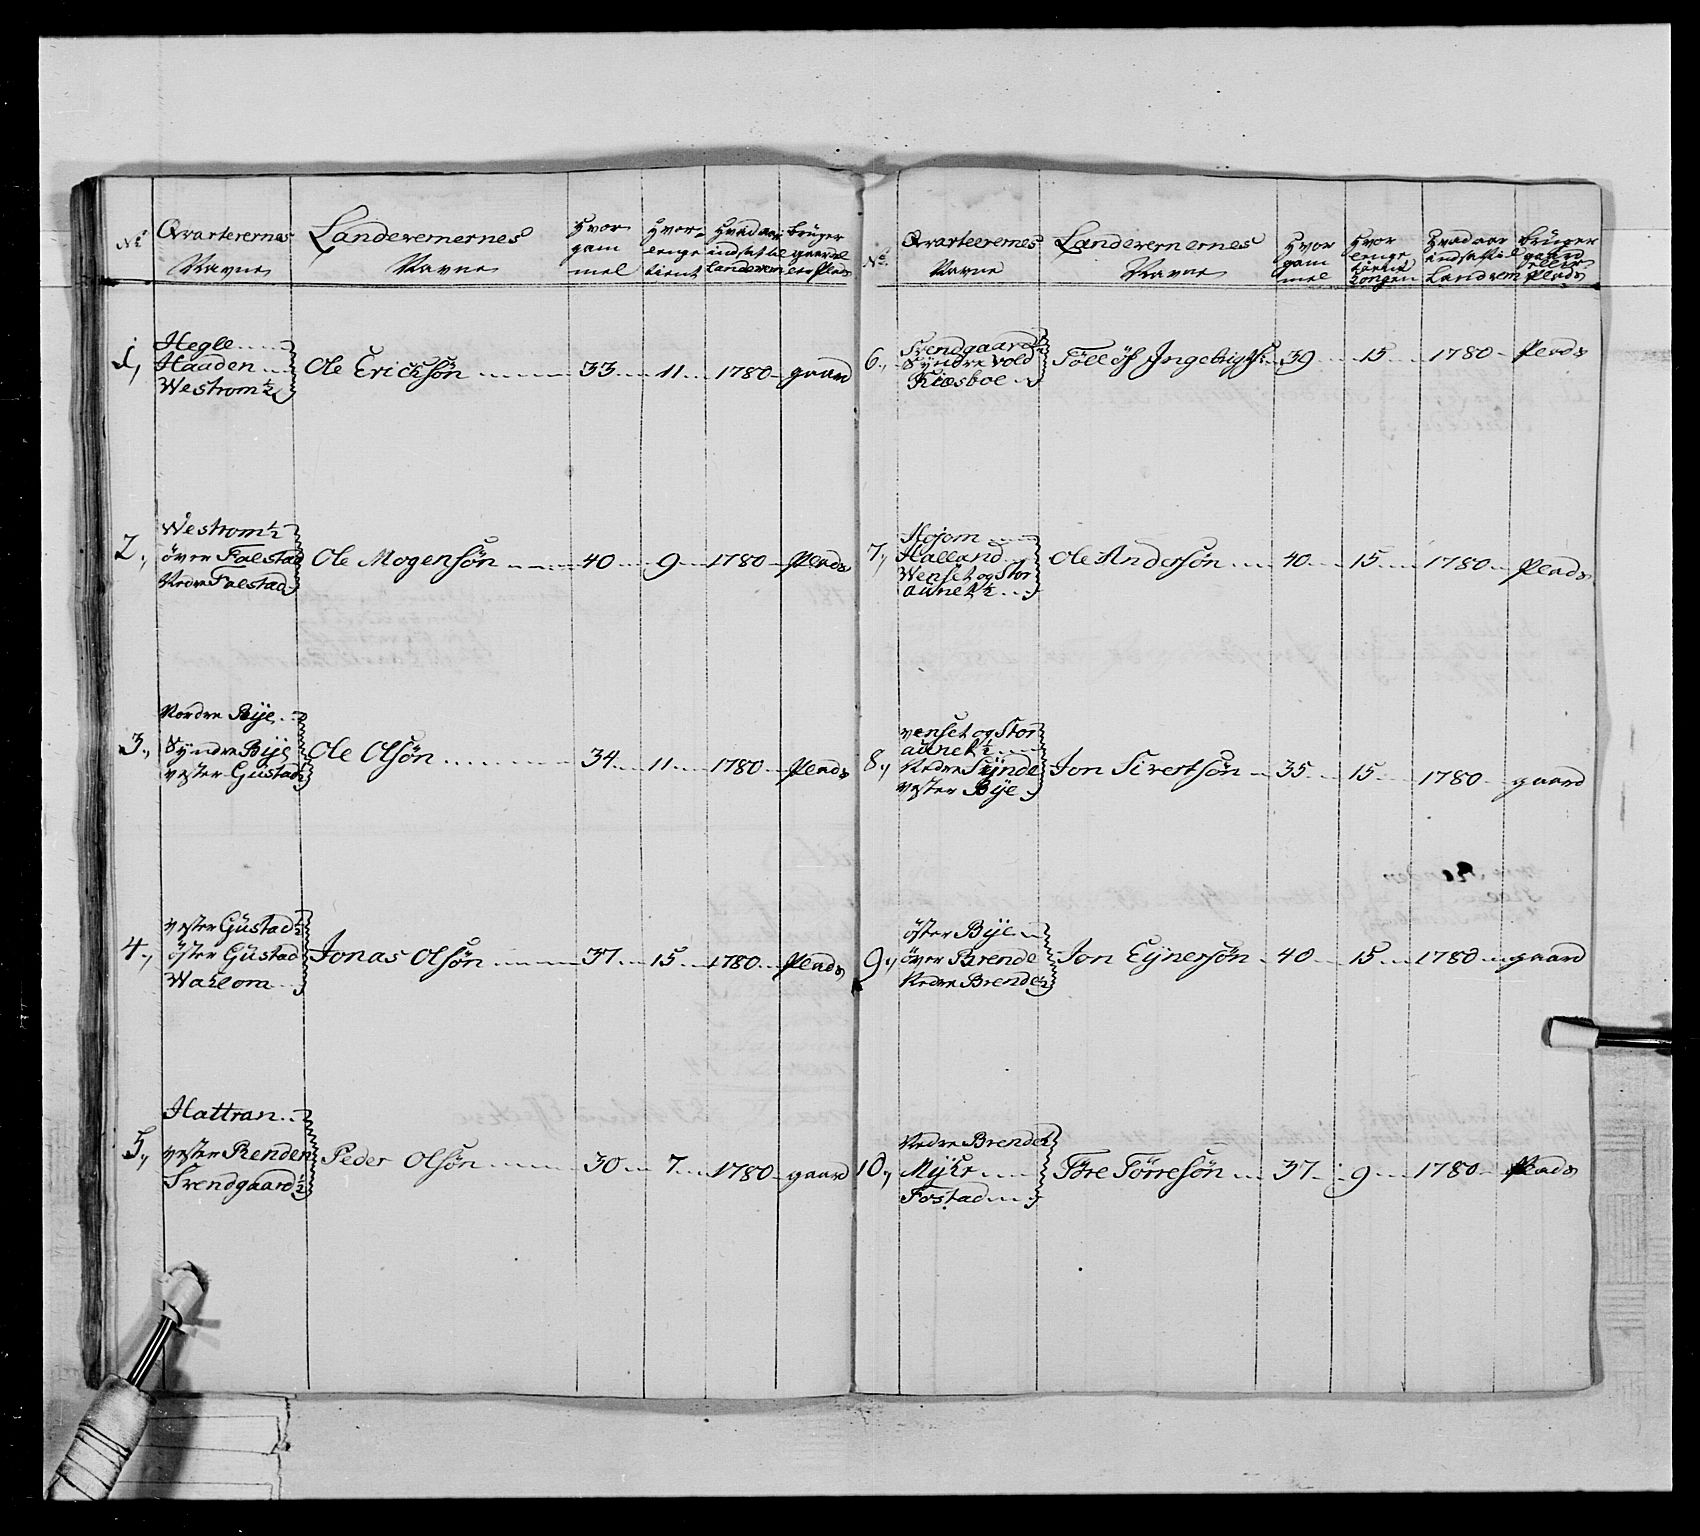 No Qvarterernes Navne Landevernernes Navne Hvor gammel Hvor lenge tient Hvad aar indsat til Landvern Brüger gaard eler Plads
1, Hegle
Haaden
Westrom ½
Ole Erichsön 33 11 1780 gaard
2, Westrom ½
över Falstad
Nedre Falstad
Ole Mogensön 40 9 1780 Plads
3, Nordre Bije
Syndre Bije
vester Güstad ½
Ole Olsön 34 11 1780 Plads
4, vester Güstad ½
öster Güstad
Jonas Olsön 37 15 1780 Plads
5, Hattran
vester Renden
Svendgaard ½
Peder Olsön 30 7 1780 gaard
No Qvarteerernes Navne Landevernernes Navne Hvor gammel Hvor lenge tient kongen Hvad aar indsat til Landvern Brüger gaard eller Plads
6, Svendgaard ½
Syndre vold
Kiesboe
Tölløf Ingebrigts: 39 15 1780 Plads
7, Hojom
Halland
Wenset og Stor
aünet ½
Ole Andersön 40 15 1780 Plads
8, venset og Stor
aünet ½
Nedre Sünde
vester Bije
Jon Sivertsön 35 15 1780 gaard
9, öster Bije
över Brende
Nedre Brende ½
Jon Eijnersön 40 15 1780 gaard
10, Nedre Brende ½
Mijhr
Fostad
Tore Törresön 37 9 1780 Plads